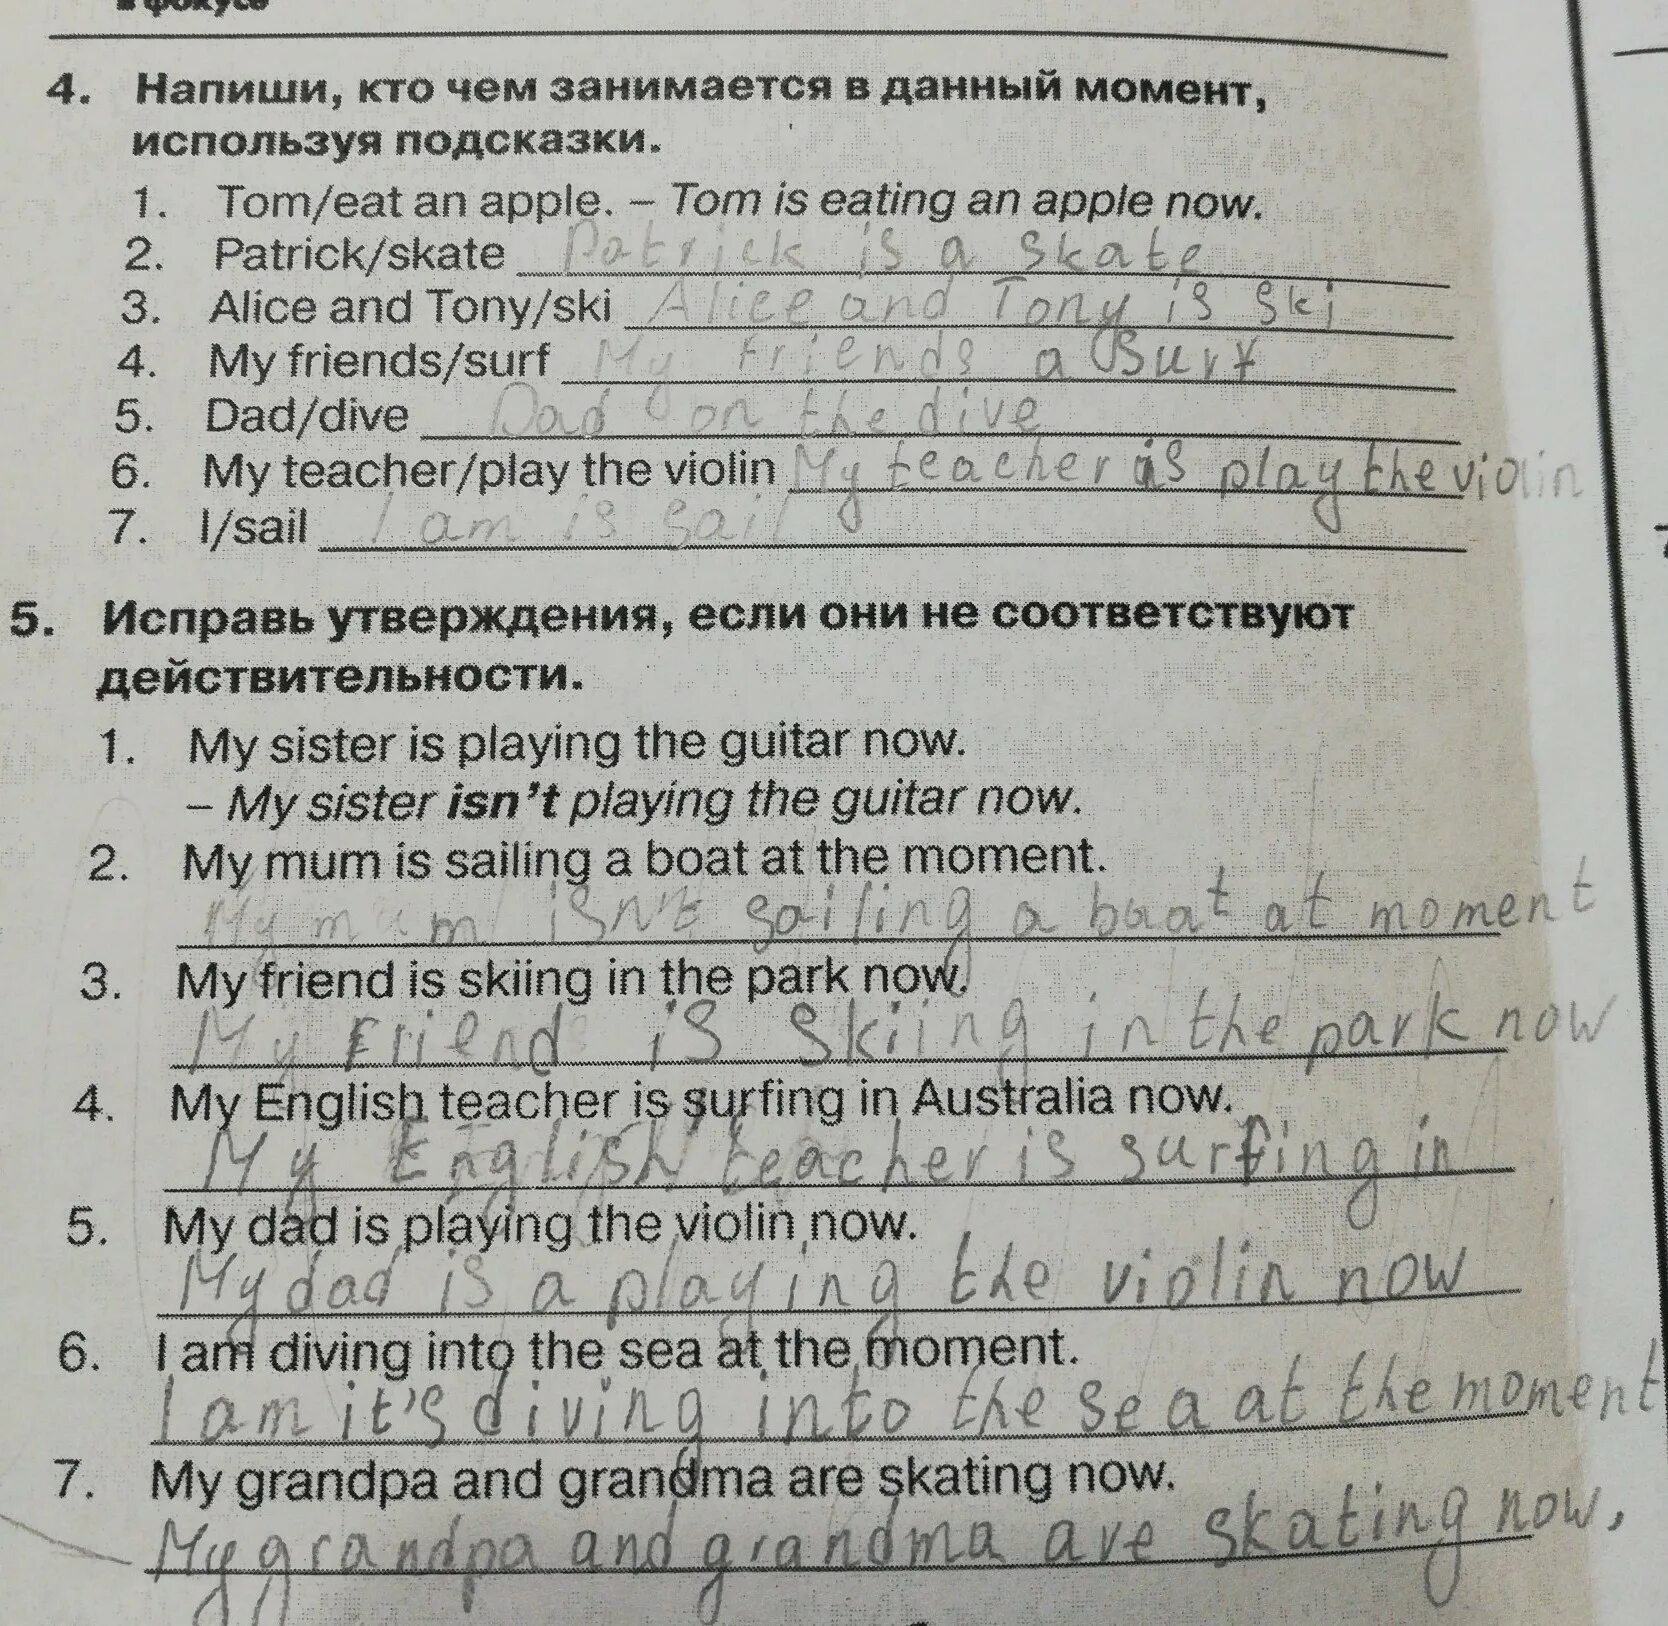 в фокусе
4. Напиши, кто чем занимается в данный момент,
используя подсказки.
1. Tom/eat an apple. – Tom is eating an apple now.
2. Patrick/skate Patrick is a skate
3. Alice and Tony/ski Alice and Tony is ski
4. My friends/surf My friends a surf
5. Dad/dive Dad on the dive
6. My teacher/play the violin My teacher is play the violin
7. I/sail I am is sail
5. Исправь утверждения, если они не соответствуют
действительности.
1. My sister is playing the guitar now.
– My sister isn't playing the guitar now.
2. My mum is sailing a boat at the moment.
My mum isn't sailing a boat at moment
3. My friend is skiing in the park now.
My friend is skiing in the park now
4. My English teacher is surfing in Australia now.
My English teacher is surfing in
5. My dad is playing the violin now.
My dad is a playing the violin now
6. I am diving into the sea at the moment.
I am it's diving into the sea at the moment
7. My grandpa and grandma are skating now.
My grandpa and grandma are skating now.